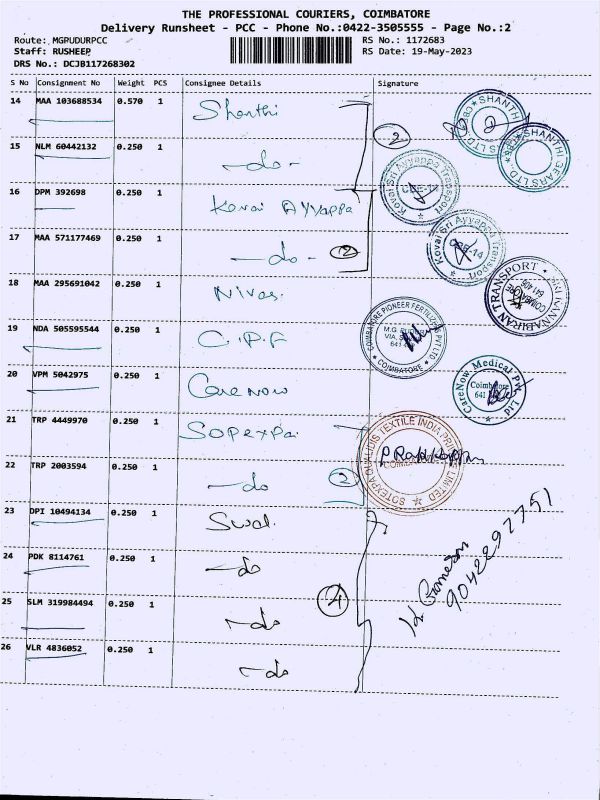 THE PROFESSIONAL COURIERS, COIMBATORE
Delivery Runsheet - PCC - Phone No.:0422-3505555 - Page No.:2
Route: MGPUDURPCC
RS No.: 1172683
Staff: RUSHEEP
RS Date: 19-May-2023
DRS No.: DCJB117268302
S No Consignment No Weight PCS Consignee Details Signature
14 MAA 103688534 0.570 1 Shanthi
15 NLM 60442132 0.250 1 -do-
2
SHANTHI GEARS LTD
SHANTHI GEARS LTD.
16 DPM 392698 0.250 1 Kovai Ayyappa
Kovai Sri Ayyappa Transport
CBE-14
17 MAA 571177469 0.250 1 -do- 2
Kovai Sri Ayyappa Transport
CBE-14
18 MAA 295691042 0.250 1 Nivas.
TRANSPORT
COIMBATORE
641 409
19 NDA 505595544 0.250 1 C.P.F
COIMBATORE PIONEER FERTILIZERS PVT LTD
COIMBATORE
20 VPM 5042975 0.250 1 Care Now
CareNow Medical Pvt Ltd
Coimbatore
641
21 TRP 4449970 0.250 1 Sopexpai
SOTEXPA QUALIDIS TEXTILE INDIA PRIVATE LIMITED
22 TRP 2003594 0.250 1 -do 2
23 DPI 10494134 0.250 1 Swal.
24 PDK 8114761 0.250 1 -do
25 SLM 319984494 0.250 1 -do
4
26 VLR 4836052 0.250 1 -do
9042297751